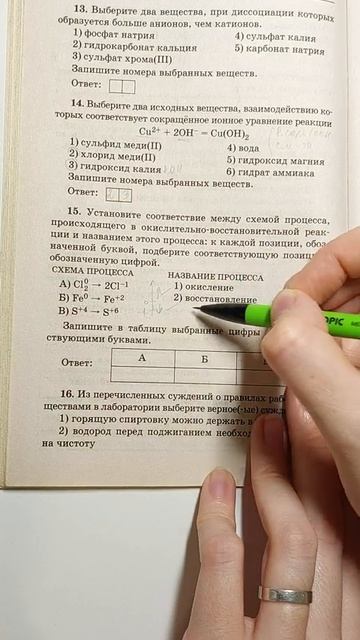 13. Выберите два вещества, при диссоциации которых
образуется больше анионов, чем катионов.
1) фосфат натрия
4) сульфат калия
2) гидрокарбонат кальция
5) карбонат натрия
3) сульфат хрома(III)
Запишите номера выбранных веществ.
Ответ:
14. Выберите два исходных вещества, взаимодействию ко-
торых соответствует сокращённое ионное уравнение реакции
Cu²⁺ + 2OH⁻ = Cu(OH)₂
1) сульфид меди(II)
4) вода
2) хлорид меди(II)
5) гидроксид магния
3) гидроксид калия
6) гидрат аммиака
Запишите номера выбранных веществ.
Ответ: 2 3
15. Установите соответствие между схемой процесса,
происходящего в окислительно-восстановительной реак-
ции и названием этого процесса: к каждой позиции, обоз-
наченной буквой, подберите соответствующую позицию,
обозначенную цифрой.
СХЕМА ПРОЦЕССА
НАЗВАНИЕ ПРОЦЕССА
А) Cl₂⁰ → 2Cl⁻¹
1) окисление
Б) Fe⁰ → Fe⁺²
2) восстановление
В) S⁺⁴ → S⁺⁶
Запишите в таблицу выбранные цифры
ствующими буквами.
Ответ:
А Б
16. Из перечисленных суждений о правилах
ществами в лаборатории выберите верное(-ые)
1) горящую спиртовку можно держать
2) водород перед поджиганием
на чистоту